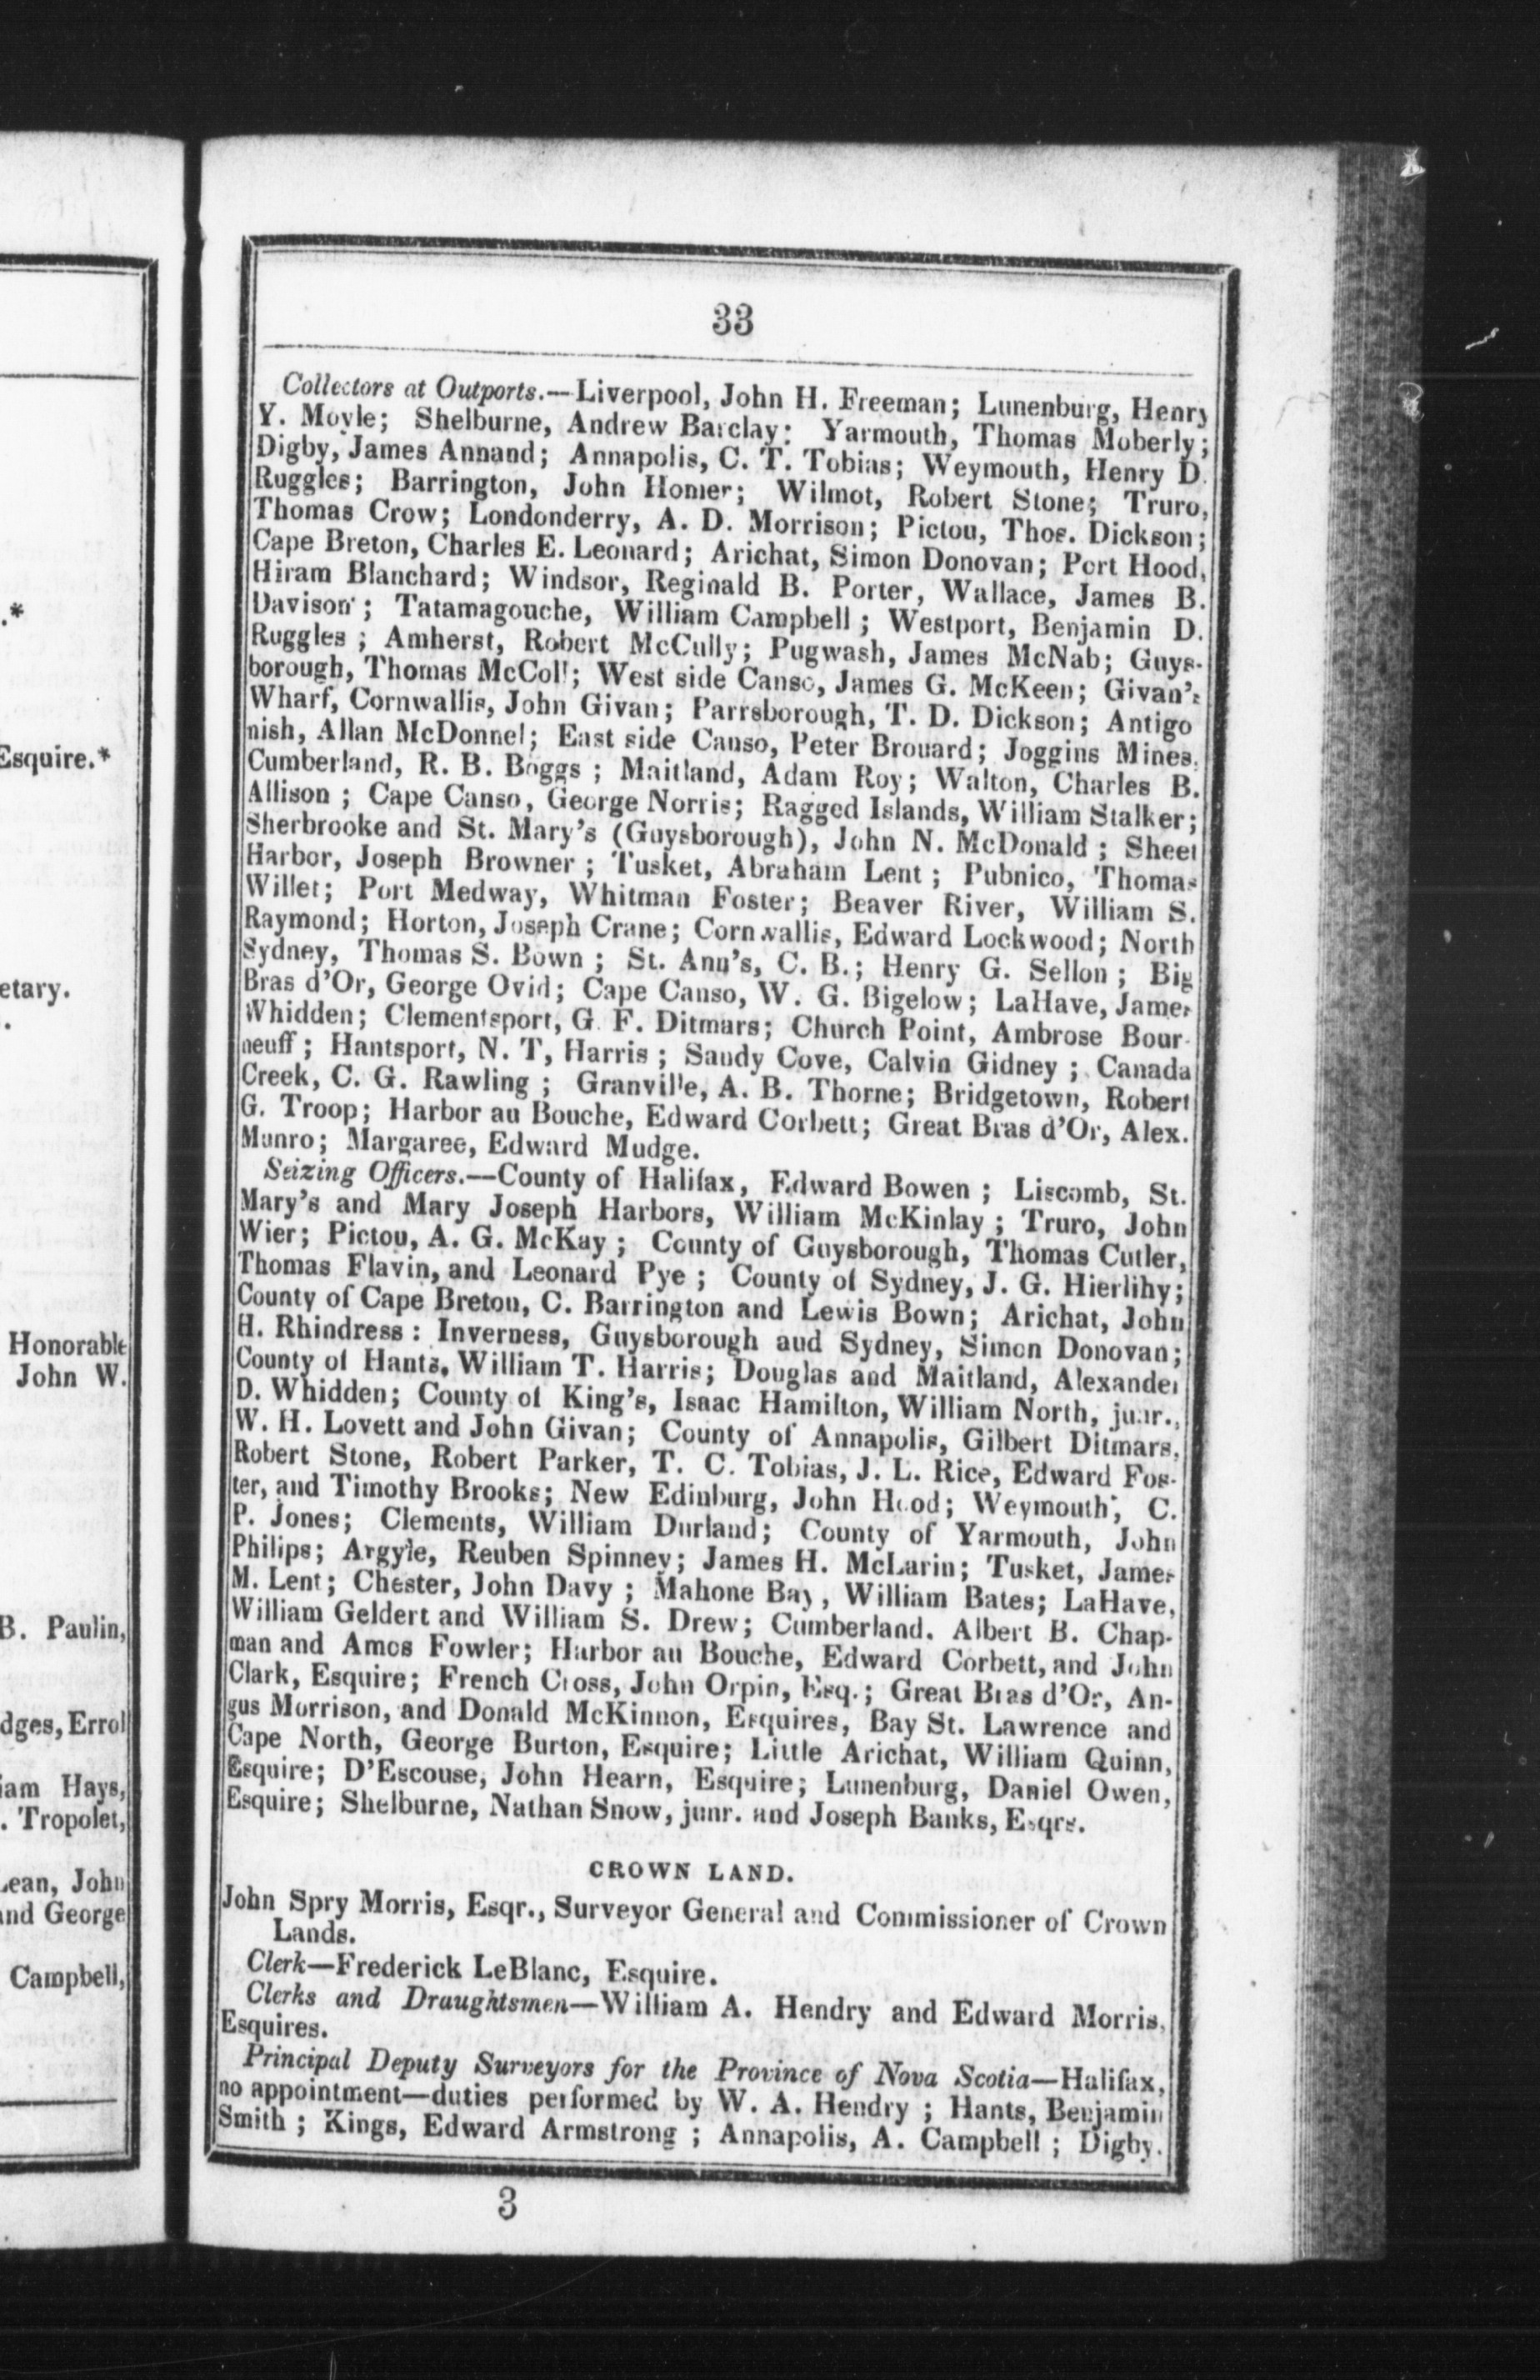 .*
Esquire.*
etary.
Honorable
John W.
B. Paulin,
dges, Errol
iam Hays,
. Tropolet,
Lean, John
and George
Campbell,
33
Collectors at Outports.—Liverpool, John H. Freeman; Lunenburg, Henry
Y. Moyle; Shelburne, Andrew Barclay: Yarmouth, Thomas Moberly;
Digby, James Annand; Annapolis, C. T. Tobias; Weymouth, Henry D.
Ruggles; Barrington, John Homer; Wilmot, Robert Stone; Truro,
Thomas Crow; Londonderry, A. D. Morrison; Pictou, Thos. Dickson;
Cape Breton, Charles E. Leonard; Arichat, Simon Donovan; Port Hood,
Hiram Blanchard; Windsor, Reginald B. Porter, Wallace, James B.
Davison; Tatamagouche, William Campbell; Westport, Benjamin D.
Ruggles; Amherst, Robert McCully; Pugwash, James McNab; Guys-
borough, Thomas McColl; West side Canso, James G. McKeen; Givan's
Wharf, Cornwallis, John Givan; Parrsborough, T. D. Dickson; Antigo
nish, Allan McDonnel; East side Canso, Peter Brouard; Joggins Mines,
Cumberland, R. B. Boggs; Maitland, Adam Roy; Walton, Charles B.
Allison; Cape Canso, George Norris; Ragged Islands, William Stalker;
Sherbrooke and St. Mary's (Guysborough), John N. McDonald; Sheet
Harbor, Joseph Browner; Tusket, Abraham Lent; Pubnico, Thomas
Willet; Port Medway, Whitman Foster; Beaver River, William S.
Raymond; Horton, Joseph Crane; Cornwallis, Edward Lockwood; North
Sydney, Thomas S. Bown; St. Ann's, C. B.; Henry G. Sellon; Big
Bras d'Or, George Ovid; Cape Canso, W. G. Bigelow; LaHave, James
Whidden; Clementsport, G. F. Ditmars; Church Point, Ambrose Bour-
neuff; Hantsport, N. T, Harris; Sandy Cove, Calvin Gidney; Canada
Creek, C. G. Rawling; Granville, A. B. Thorne; Bridgetown, Robert
G. Troop; Harbor au Bouche, Edward Corbett; Great Bras d'Or, Alex.
Munro; Margaree, Edward Mudge.
Seizing Officers.—County of Halifax, Edward Bowen; Liscomb, St.
Mary's and Mary Joseph Harbors, William McKinlay; Truro, John
Wier; Pictou, A. G. McKay; County of Guysborough, Thomas Cutler,
Thomas Flavin, and Leonard Pye; County of Sydney, J. G. Hierlihy;
County of Cape Breton, C. Barrington and Lewis Bown; Arichat, John
H. Rhindress: Inverness, Guysborough and Sydney, Simon Donovan;
County of Hants, William T. Harris; Douglas and Maitland, Alexander
D. Whidden; County of King's, Isaac Hamilton, William North, junr.,
W. H. Lovett and John Givan; County of Annapolis, Gilbert Ditmars,
Robert Stone, Robert Parker, T. C. Tobias, J. L. Rice, Edward Fos-
ter, and Timothy Brooks; New Edinburg, John Hood; Weymouth, C.
P. Jones; Clements, William Durland; County of Yarmouth, John
Philips; Argyle, Reuben Spinney; James H. McLarin; Tusket, James
M. Lent; Chester, John Davy; Mahone Bay, William Bates; LaHave,
William Geldert and William S. Drew; Cumberland. Albert B. Chap-
man and Amos Fowler; Harbor au Bouche, Edward Corbett, and John
Clark, Esquire; French Cross, John Orpin, Esq.; Great Bras d'Or, An-
gus Morrison, and Donald McKinnon, Esquires, Bay St. Lawrence and
Cape North, George Burton, Esquire; Little Arichat, William Quinn,
Esquire; D'Escouse, John Hearn, Esquire; Lunenburg, Daniel Owen,
Esquire; Shelburne, Nathan Snow, junr. and Joseph Banks, Esqrs.
CROWN LAND.
John Spry Morris, Esqr., Surveyor General and Commissioner of Crown
Lands.
Clerk—Frederick LeBlanc, Esquire.
Clerks and Draughtsmen—William A. Hendry and Edward Morris,
Esquires.
Principal Deputy Surveyors for the Province of Nova Scotia—Halifax,
no appointment—duties performed by W. A. Hendry; Hants, Benjamin
Smith; Kings, Edward Armstrong; Annapolis, A. Campbell; Digby.
3